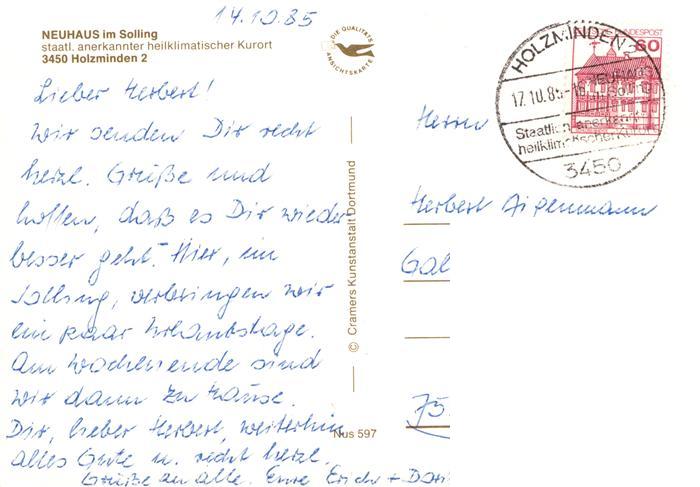 14.10.85
NEUHAUS im Solling
staatl. anerkannter heilklimatischer Kurort
3450 Holzminden 2
DIE QUALITÄTS
ANSICHTSKARTE
Lieber Herbert!
Wir senden Dir recht
herzl. Grüße und
hoffen, daß es Dir wieder
besser geht. Hier, im
Solling, verbringen wir
ein paar Urlaubstage.
Am Wochenende sind
wir dann zu Hause.
Dir, lieber Herbert, weiterhin
alles Gute u. recht herzl.
Grüße an alle. Eure Erich + Dori
© Cramers Kunstanstalt Dortmund
Nus 597
HOLZMINDEN 2
NEUHAUS
17.10.85-16
Staatlich anerkannter
heilklimatischer
3450
BUNDESPOST
60
Herrn
Herbert Aigenmann
Gal
75